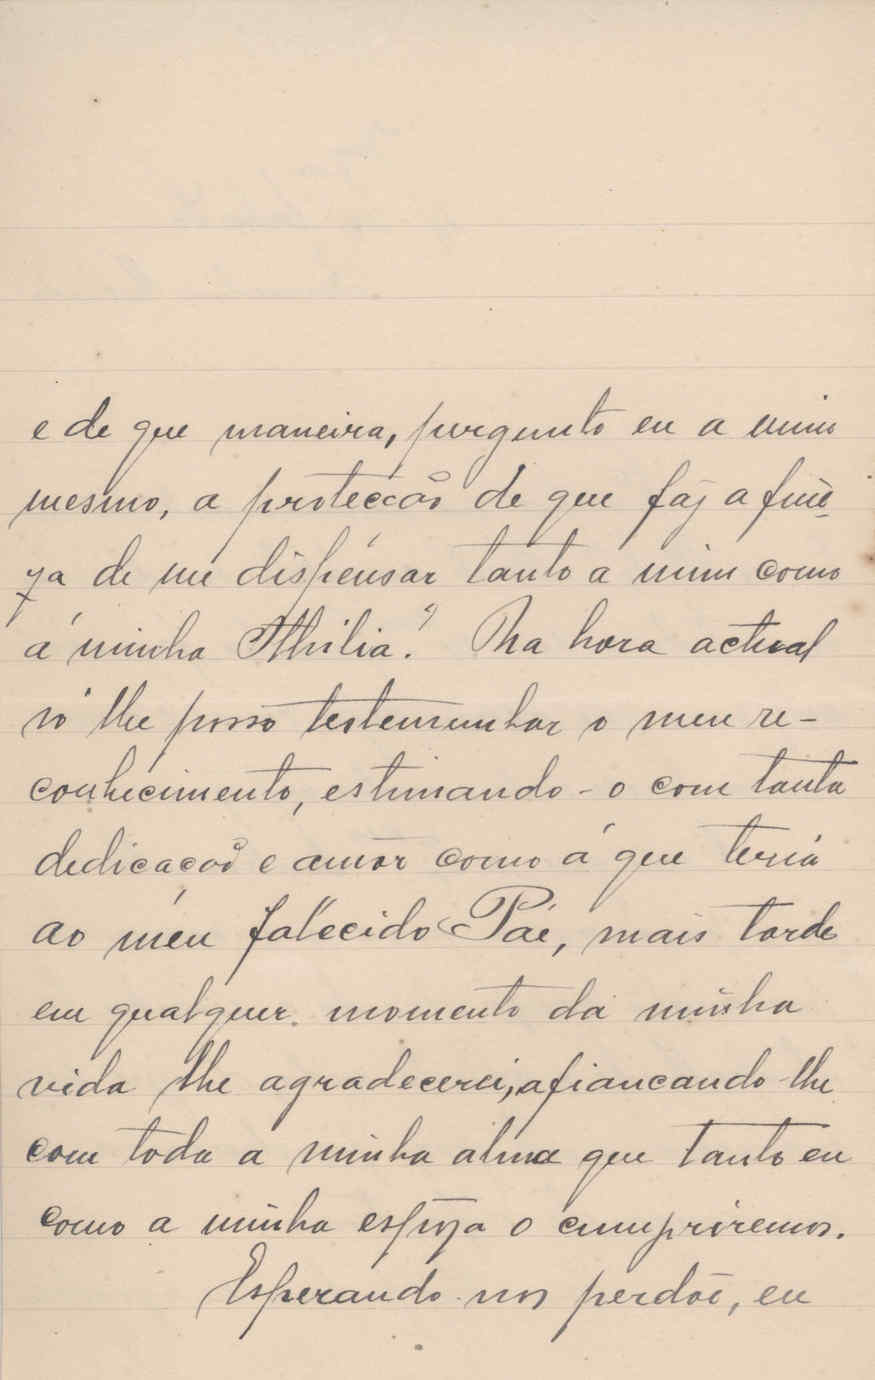 e de que maneira, pergunto eu a mim
mesmo, a protecção de que faz a fine-
za de me dispensar tanto a mim como
á minha Othilia? Na hora actual
só lhe posso testemunhar o meu re-
conhecimento, estimando-o com tanta
dedicação e amor como á que teria
ao meu fallecido Páe, mais tarde
em qualquer momento da minha
vida lhe agradecerei, afiancando-lhe
com toda a minha alma que tanto eu
como a minha espoza o cumpriremos.
Esperando nos perdôe, eu